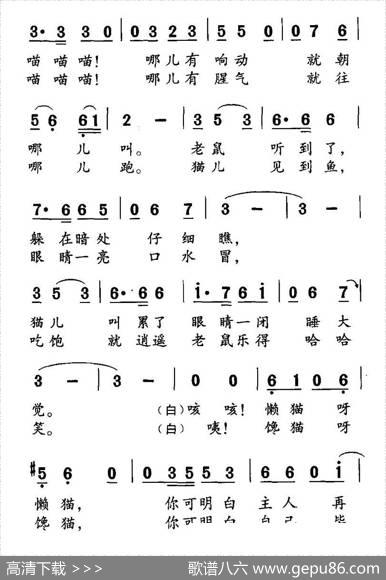 3·3 3 0 | 0 3 2 3 | 5 5 0 | 0 7 6 |
喵喵喵! 哪儿有响动 就朝
喵喵喵! 哪儿有腥气 就往
5 6 6 1 | 2 - | 3 5 3 | 6·6 6 |
哪儿叫。 老鼠听到了,
哪儿跑。 猫儿见到鱼,
7·6 6 5 | 0 6 7 | 3 - | 3 - |
躲在暗处 仔细瞧,
眼睛一亮 口水冒,
3 5 3 | 6·6 6 | i·7 6 i | 0 6 7 |
猫儿叫累了 眼睛一闭 睡大
吃饱就逍遥 老鼠乐得 哈哈
3 - | 3 - | 0 0 | 6 i 0 6 |
觉。 (白)咳 咳! 懒猫呀
笑。 (白)咦! 馋猫呀
#5 6 0 | 0 3 5 5 3 | 6 6 0 i |
懒猫, 你可明白主人再
馋猫, 你可明白自己
高清下载 >>>
歌谱八六 www.gepu86.com